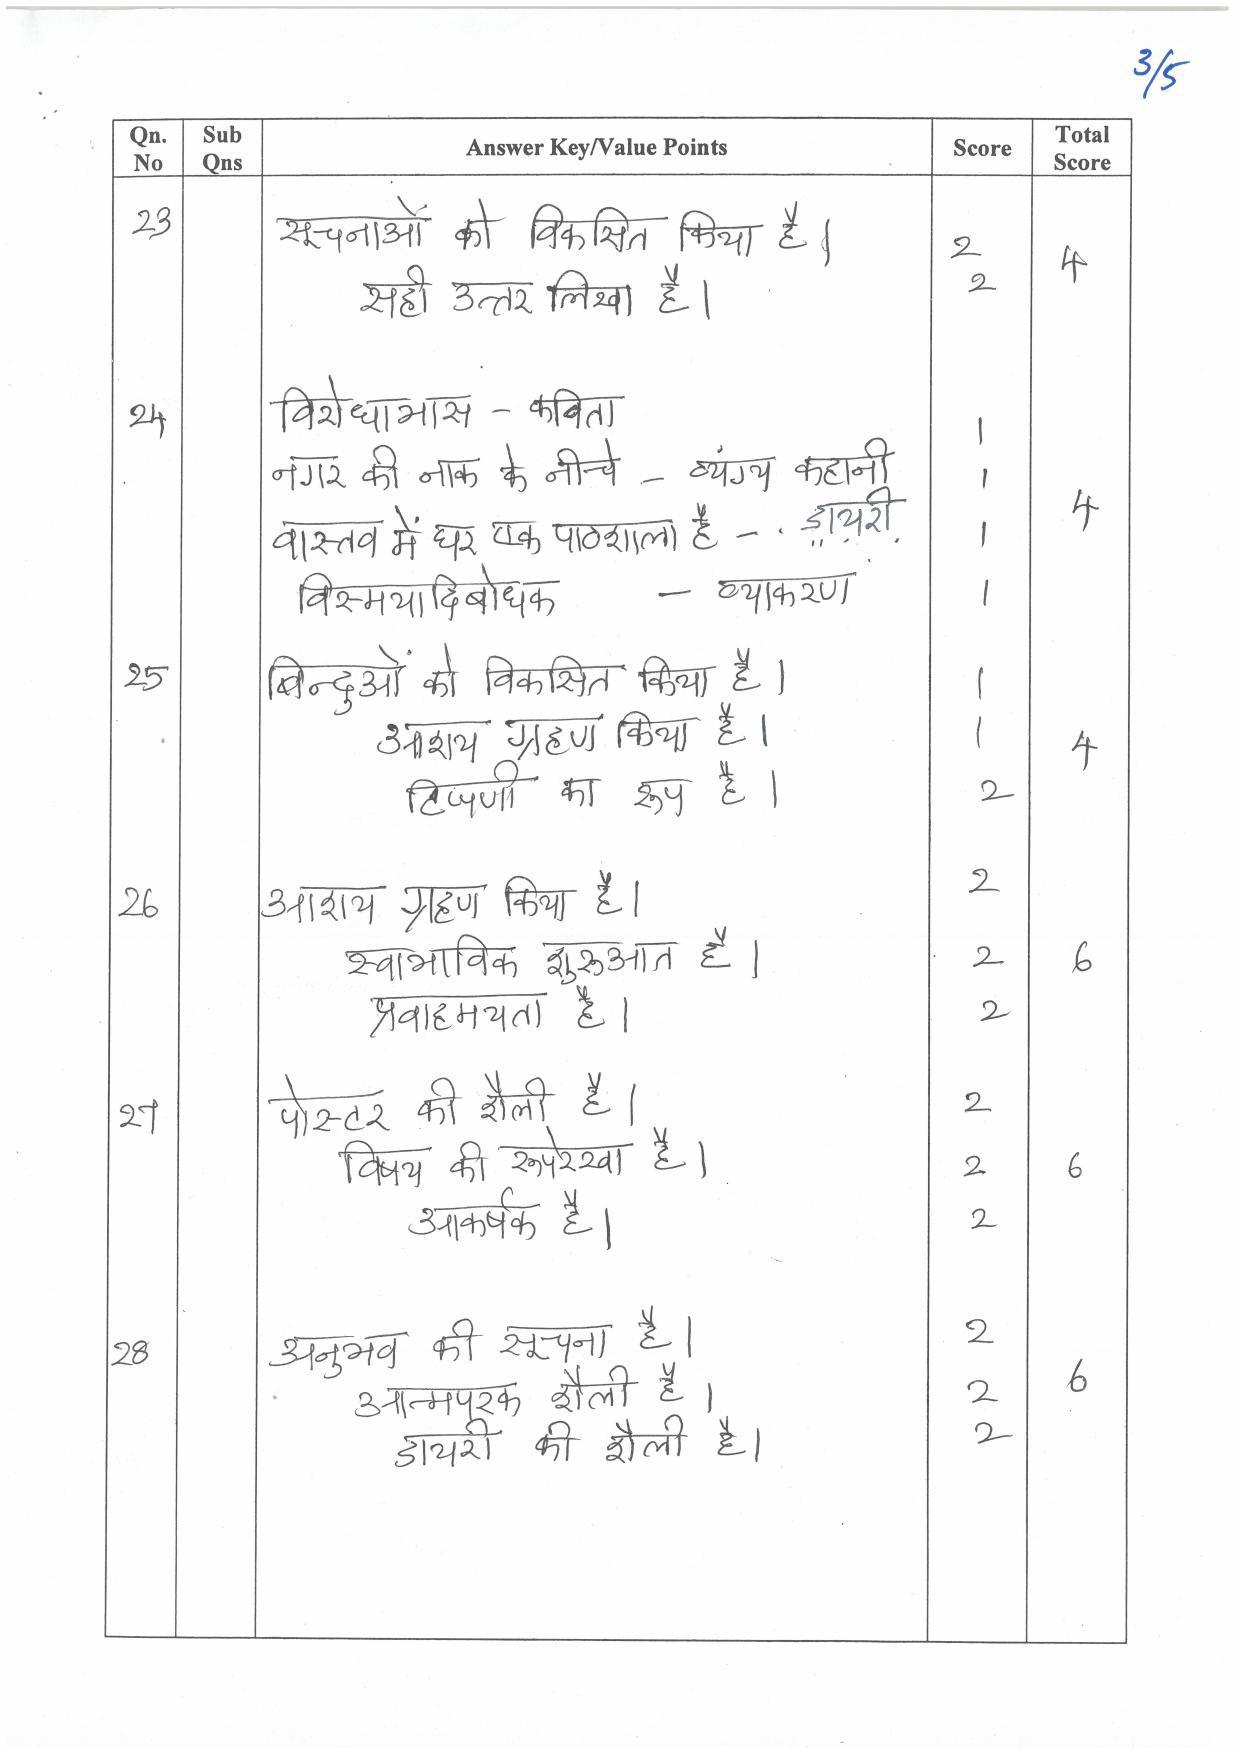 3/5
Qn. No Sub Qns Answer Key/Value Points Score Total Score
23 सूचनाओं को विकसित किया है। 2 4
सही उत्तर लिखा है। 2
24 विरोधाभास - कविता 1 4
नगर की नाक के नीचे - व्यंग्य कहानी 1
वास्तव में घर एक पाठशाला है - डायरी 1
विस्मयादिबोधक - व्याकरण 1
25 बिन्दुओं को विकसित किया है। 1 4
आशय ग्रहण किया है। 1
टिप्पणी का रूप है। 2
26 आशय ग्रहण किया है। 2 6
स्वाभाविक शुरूआत है। 2
प्रवाहमयता है। 2
27 पोस्टर की शैली है। 2 6
विषय की रूपरेखा है। 2
आकर्षक है। 2
28 अनुभव की सूचना है। 2 6
आत्मपरक शैली है। 2
डायरी की शैली है। 2